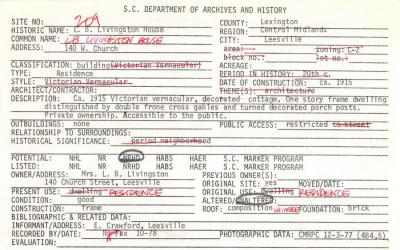 S.C. DEPARTMENT OF ARCHIVES AND HISTORY
SITE NO: 209 COUNTY: Lexington
HISTORIC NAME: L. B. Livingston House REGION: Central Midlands
COMMON NAME: LB LIVINGSTON HOUSE CITY: Leesville
ADDRESS: 140 W. Church area: zoning: C-2
block no.: lot no.:
CLASSIFICATION: building (Victorian Vernacular) ACREAGE:
TYPE: Residence PERIOD IN HISTORY: 20th c.
STYLE: Victorian Vernacular DATE OF CONSTRUCTION: ca. 1915
ARCHITECT/CONTRACTOR: THEME(S): architecture
DESCRIPTION: Ca. 1915 Victorian vernacular, decorated cottage. One story frame dwelling
distinguished by double frone cross gables and turned decorated porch posts.
Private ownership. Accessible to the public.
OUTBUILDINGS: none PUBLIC ACCESS: restricted to street
RELATIONSHIP TO SURROUNDINGS:
HISTORICAL SIGNIFICANCE: period neighborhood
POTENTIAL: NHL NR NRHD HABS HAER S.C. MARKER PROGRAM
LISTED: NHL NR NRHD HABS HAER S.C. MARKER PROGRAM
OWNER/ADDRESS: Mrs. L. B. Livingston PREVIOUS OWNER(S):
140 Church Street, Leesville ORIGINAL SITE: yes MOVED/DATE:
PRESENT USE: dwelling RESIDENCE ORIGINAL USE: dwelling RESIDENCE
CONDITION: good ALTERED/UNALTERED:
CONSTRUCTION: frame ROOF: composition SHINGLE FOUNDATION: brick
BIBLIOGRAPHIC & RELATED DATA:
INFORMANT/ADDRESS: E. Crawford, Leesville
RECORDED BY/DATE: 10-78 PHOTOGRAPHIC DATA: CMRPC 12-3-77 (4B4,5)